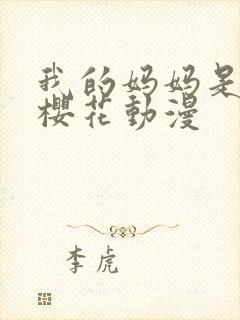 我的妈妈是
樱花動漫
李虎